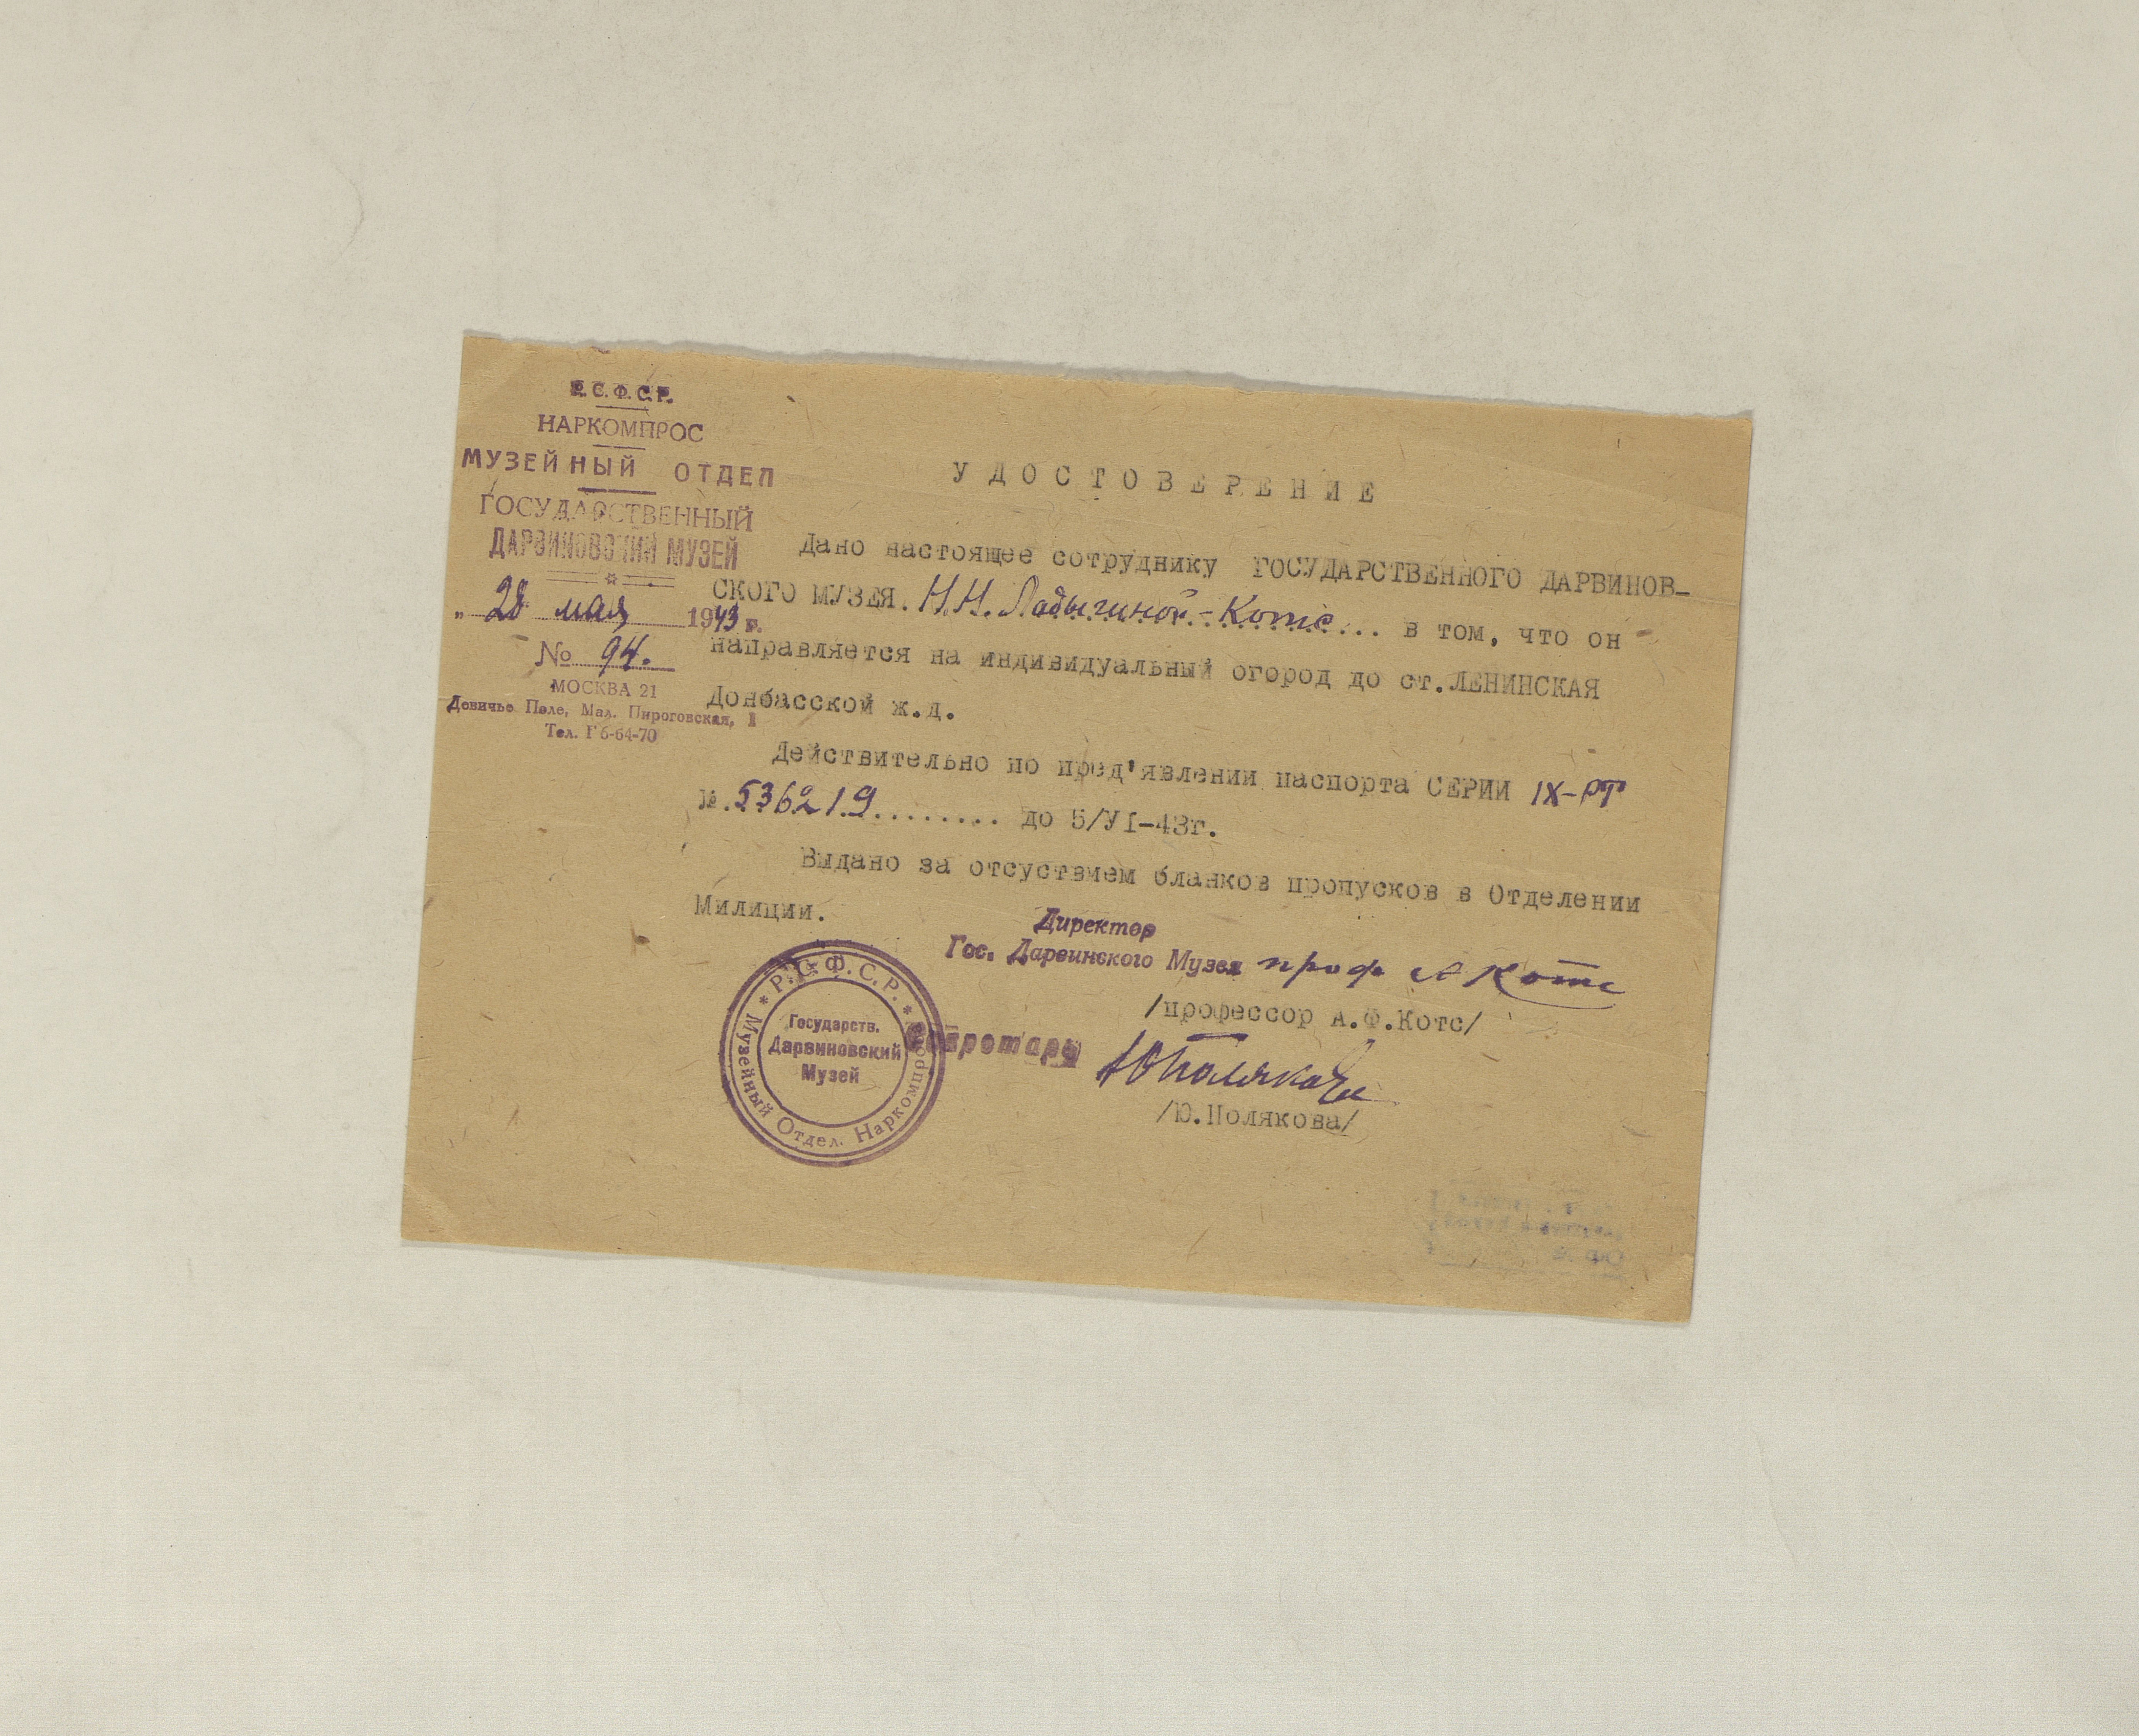 Р.С.Ф.С.Р.
НАРКОМПРОС
МУЗЕЙНЫЙ ОТДЕЛ
ГОСУДАРСТВЕННЫЙ
ДАРВИНОВСКИЙ МУЗЕЙ
„28 мая 1943 г.
№ 94.
МОСКВА 21
Девичье Поле, Мал. Пироговская, 1
Тел. Г 6-64-70
УДОСТОВЕРЕНИЕ
Дано настоящее сотруднику ГОСУДАРСТВЕННОГО ДАРВИНОВ-
СКОГО МУЗЕЯ. Н.Н. Ладыгиной-Котс... в том, что он
направляется на индивидуальный огород до ст.ЛЕНИНСКАЯ
Донбасской ж.д.
Действительно по пред'явлении паспорта СЕРИИ IX-РТ
№.536219........ до 5/УI-43г.
Выдано за отсуствием бланков пропусков в Отделении
Милиции.
Директор
Гос. Дарвинского Музея проф А Котс
/профессор А.Ф.Котс/
Секретарь ЮПолякова
/Ю.Полякова/
* Р.С.Ф.С.Р. *
Музейный Отдел. Наркомпроса
Государств.
Дарвиновский
Музей